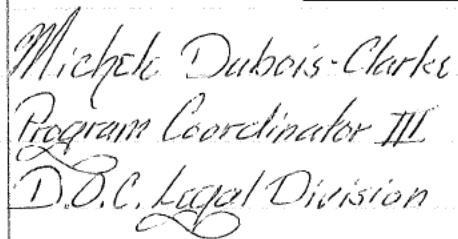 Michele Dubois-Clarke
Program Coordinator III
D.O.C. Legal Division